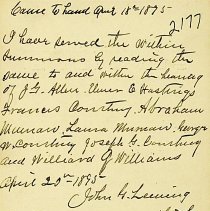 Came to hand Apr 18th 1895
2177
I have served the within
summons by reading the
same to and within the hearing
of J. G. Allen Elmer E Hastings
Francis Courtney. Abraham
Mumaw, Laura Mumaw, George
W. Courtney Joseph G. Courtney
and Williard G Williams
April 23rd 1895
John G. Leening